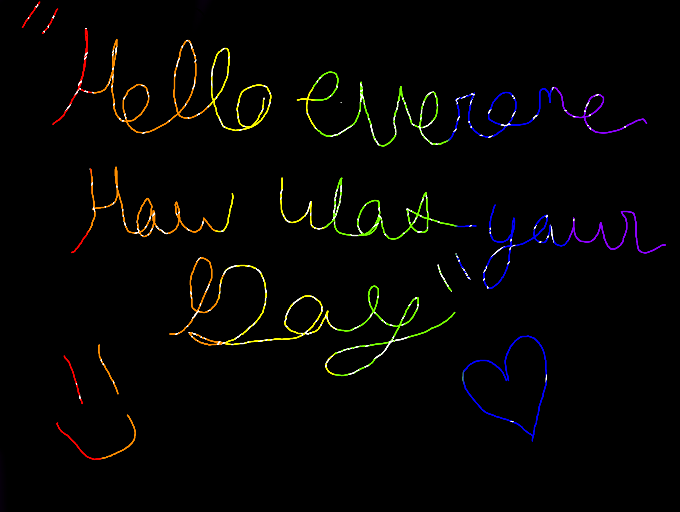 "Hello everone
How was your
Day"